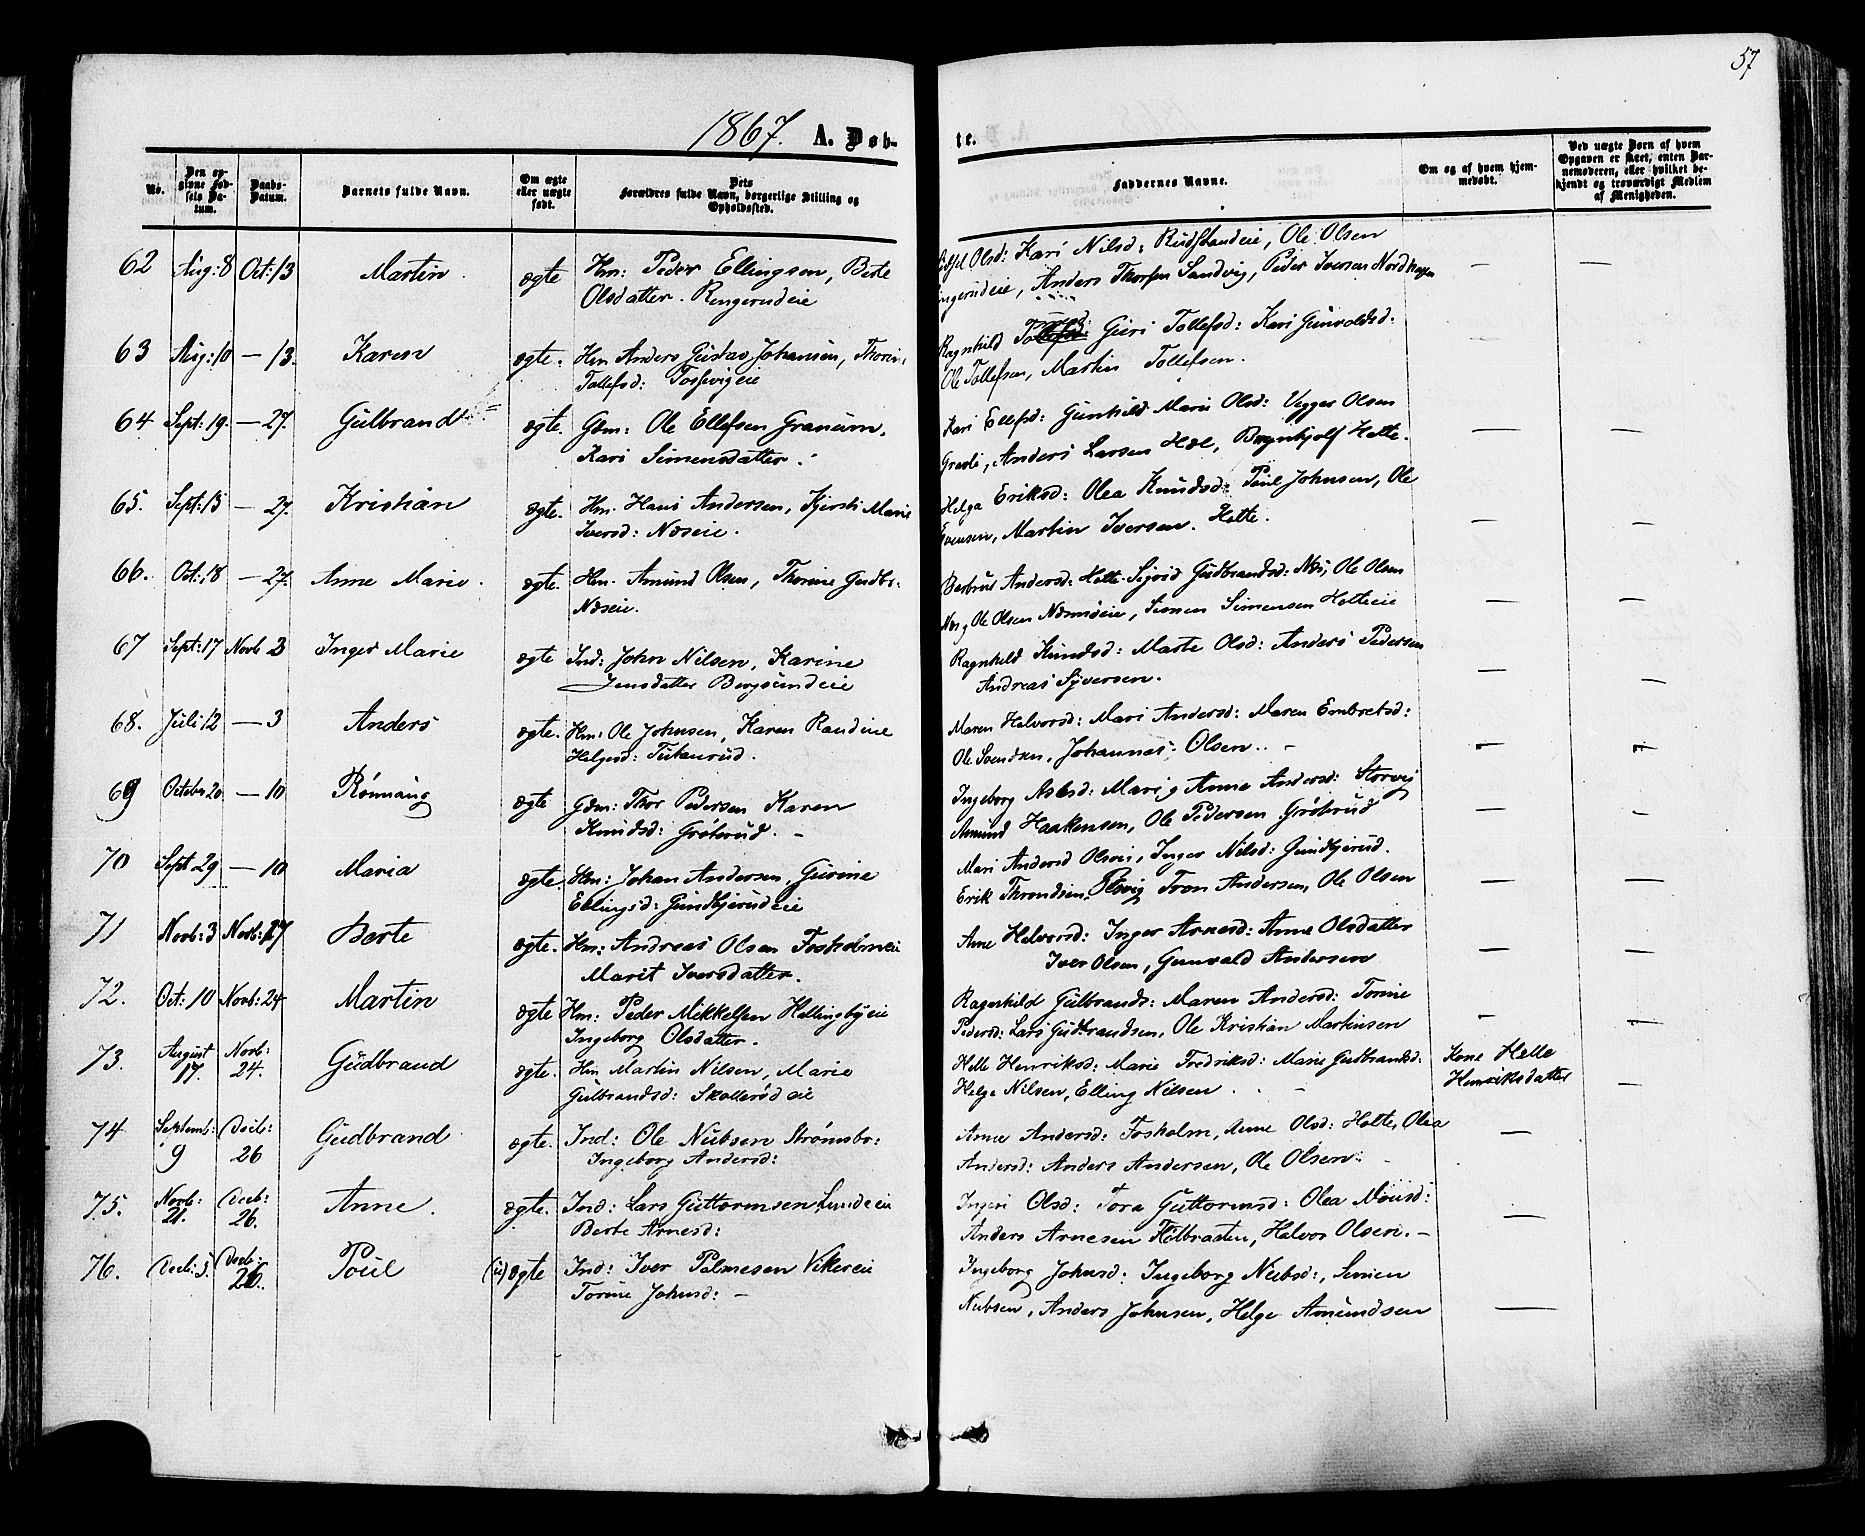 57
1867. A. Døb-
te.
No.
Den opgivne Fødsels Datum.
Daabs-Datum.
Barnets fulde Navn.
Om ægte eller uægte født.
Dets Forældres fulde Navn, borgerlige Stilling og Opholdssted.
Faddernes Navne.
Om og af hvem hjemmedøbt.
Ved uægte Børn af hvem Opgaven er skeet, enten Barnemoderen, eller hvilket bekjendt og troværdigt Medlem af Menigheden.
62 Aug: 8 Oct: 13 Martin. ægte Hm: Peder Ellingsen, Berte
Olsdatter. Ringerudeie
Olsd: Kari Nilsd: Rudstandeie, Ole Olsen
Ringerudeie, Anders Thorsen Sandvig, Peder Iversen Nordhagen
— —
63 Aug: 10 — 13. Karen ægte. Hm Anders Gustav Johansen, Thorine
Tollefsd: Fossvigeie
Ragnhild Guri Tollefsd: Kari Gunvaldsd:
Ole Tollefsen, Martin Tollefsen.
64 Sept: 19. — 27. Gulbrand ægte. Gbm: Ole Ellefsen Granum,
Kari Simensdatter.
Kari Ellefsd: Gunhild Marie Olsd: Vegger Olsen
Anders Larsen Hol, Brynhjolf Holte.
— —
65. Sept: 15 — 27. Kristian ægte. Hm. Hans Andersen, Kjersti Marie
Iversd: Næseie.
Helga Eriksd: Olea Knudsd: Paul Johnsen, Ole
Svensen, Martin Iversen. Holte.
— —
66. Oct: 18 — 27. Anne Marie. ægte. Hm. Amund Olsen, Thorine Gudbr:
Næseie.
Berbrut Andersd: Holte. Sigrid Gudbrandsd: Næs, Ole Olsen
Næs, Ole Olsen Næsmoeie, Simen Simensen Holteeie
— —
67 Sept: 17 Novb 3 Inger Marie ægte Ind: John Nilsen, Karine
Jensdatter Bergsundeie
Ragnhild Knudsd: Marte Olsd: Anders Pedersen
Andreas Syversen.
— —
68. Juli 12 — 3 Anders ægte. Hm: Ole Johnsen, Karen Randine
Helgesd: Tukerud.
Maren Halvorsd: Mari Andersd: Maren Embretsd:
Ole Svendsen, Johannes Olsen. -
— —
69 October 20 — 10 Rønnaug ægte Gbm: Thor Pedersen Karen
Knudsd: Grøterud. -
Ingeborg Aslesd: Mari og Anne Andersd: Storvig
Amund Haakensen, Ole Pedersen Grøterud
— —
70 Sept 29 — 10 Maria ægte. Hm: Johan Andersen, Gurine
Ellingsd: Gundhjerudeie
Mari Andersd Olseie, Inger Nilsd: Gundhjerud.
Erik Throndsen, Plsvig Tron Andersen, Ole Olsen
— —
71 Novb: 3 Novb: 17 Berte ægte. Hm: Andreas Olsen Fosholmeie
Marit Iversdatter.
Anne Halvorsd: Inger Arnesd: Anne Olsdatter
Iver Olsen, Gunvald Andersen
— —
72. Oct: 10 Novb: 24 Martin ægte Hm: Peder Mikkelsen Hellingbyeie
Ingeborg Olsdatter.
Ragnhild Gulbrands: Maren Andersd: Torine
Pedersd: Lars Gudbrandsen, Ole Kristian Martinsen
— —
73. August 17. Novb: 24. Gudbrand ægte. Hm Martin Nilsen, Marie
Gulbrandsd: Skallerødeie
Helle Henriksd: Marie Fredriksd: Marie Gudbrandsd:
Helge Nilsen, Elling Nilsen.
Kone Helle Henriksdatter
—
74 Septemb: 9 Decb: 26 Gudbrand ægte. Ind: Ole Nubsen Strømsbo:
Ingeborg Andersd:
Anne Andersd: Fosholm, Anne Olsd: Holte, Olea
Andersd: Anders Andersen, Ole Olsen.
—
75. Novb: 21. Decb: 26. Anne. ægte. Ind: Lars Guttormsen Lundeeie
Berte Arnesd:
Ingeri Olsd: Tora Guttormsd: Olea Monsd:
Anders Arnesen Halvor Olsen. -
—
76. Decb: 3. Decb: 26. Poul (u)ægte Ind: Iver Palmesen Vikereie
Torine Johnsd: -
Ingeborg Johnsd: Ingeborg Nubsd:, Simen
Nubsen, Anders Johnsen, Helge Amundsen
—